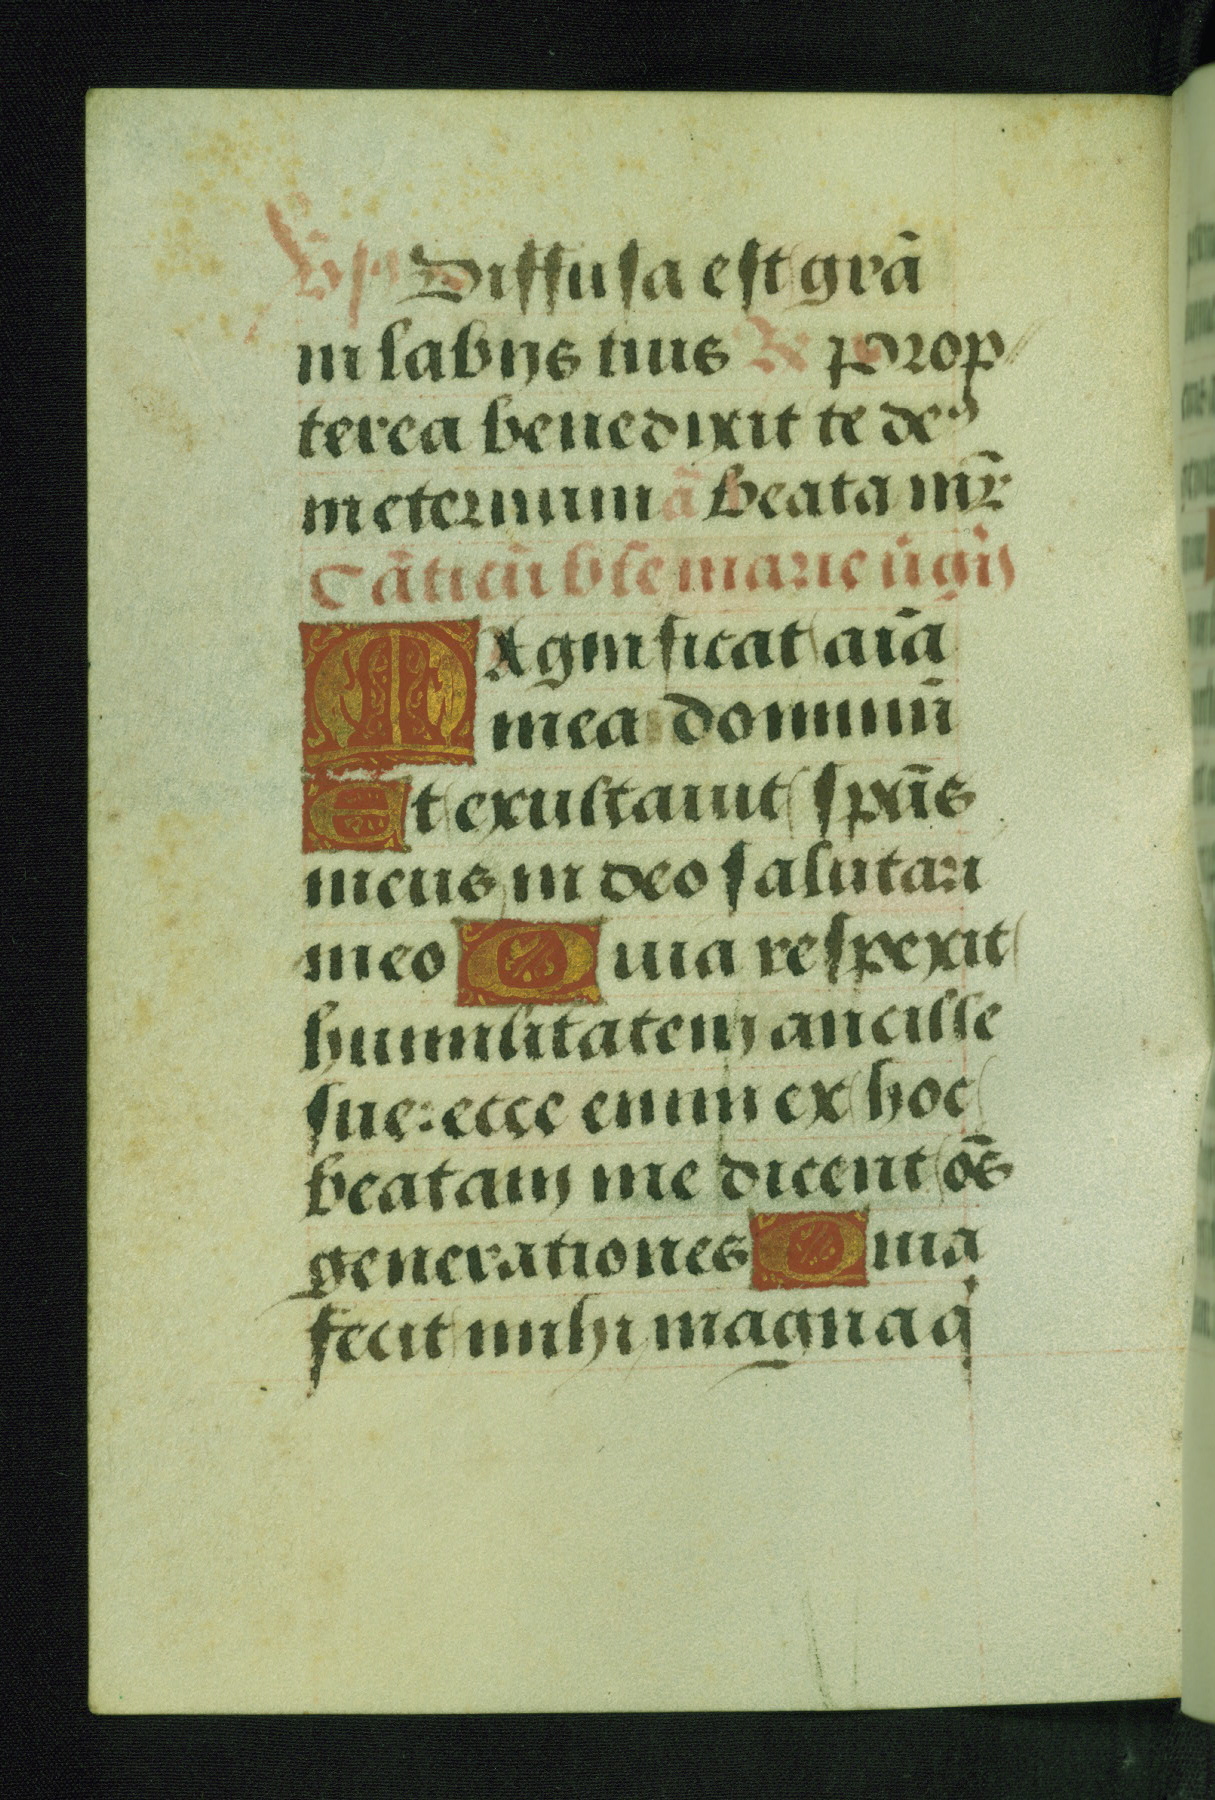 V̄s Diffusa est grā
in labijs tuis ℟ prop
terea benedixit te deꝰ
in eternum ā Beata mr̄
Cāticū bt̄e marie v̄gīs
MAgnificat aīa
mea dominū
Et exultauit sp̄us
meus in deo salutari
meo Quia respexit
humilitatem ancille
sue: ecce enim ex hoc
beatam me dicent oēs
generationes Quia
fecit mihi magna q̇